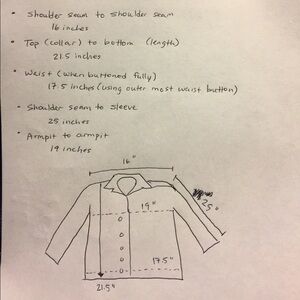 • Shoulder seam to shoulder seam
16 inches
• Top (collar) to bottom (length)
21.5 inches
• Waist (when buttoned fully)
17.5 inches (using outer most waist button)
- Shoulder seam to sleeve
25 inches
• Armpit to armpit
19 inches
16"
25"
19"
17.5"
21.5"